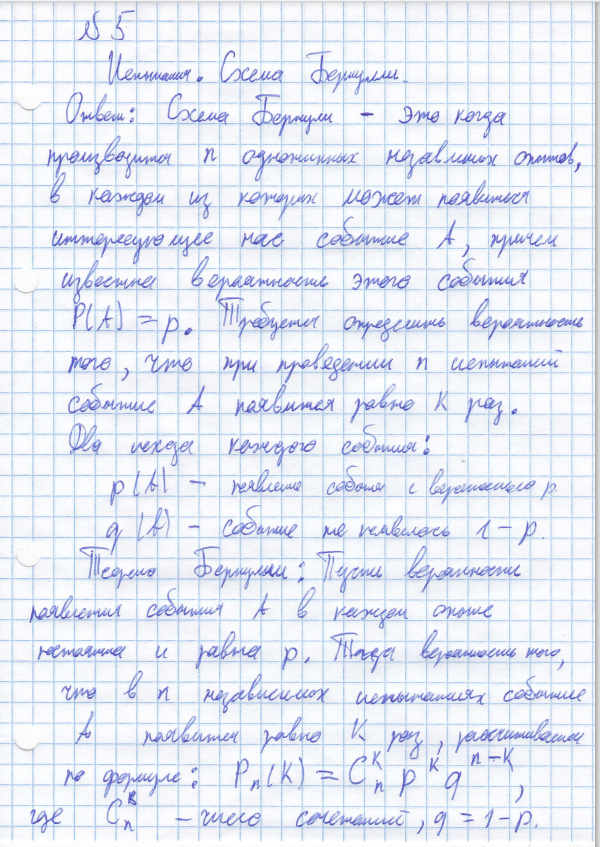 № 5
Испытания. Схема Бернулли.
Ответ: Схема Бернули – это когда
производится n однотипных независимых опытов,
в каждом из которых может появиться
интересующее нас событие A, причем
известна вероятность этого события
P(A) = p. Требуется определить вероятность
того, что при проведении n испытаний
событие A появится равно K раз.
Два исхода каждого события:
p(A) – появление события с вероятностью p
q(A) – событие не появилось 1 – p.
Теорема Бернулли: Пусть вероятность
появления события A в каждом опыте
постоянна и равна p. Тогда вероятность того,
что в n независимых испытаниях событие
A появится равно K раз, рассчитывается
по формуле: Pₙ(K) = Cₙᴷ pᴷ qⁿ⁻ᴷ,
где Cₙᴷ – число сочетаний, q = 1 – p.